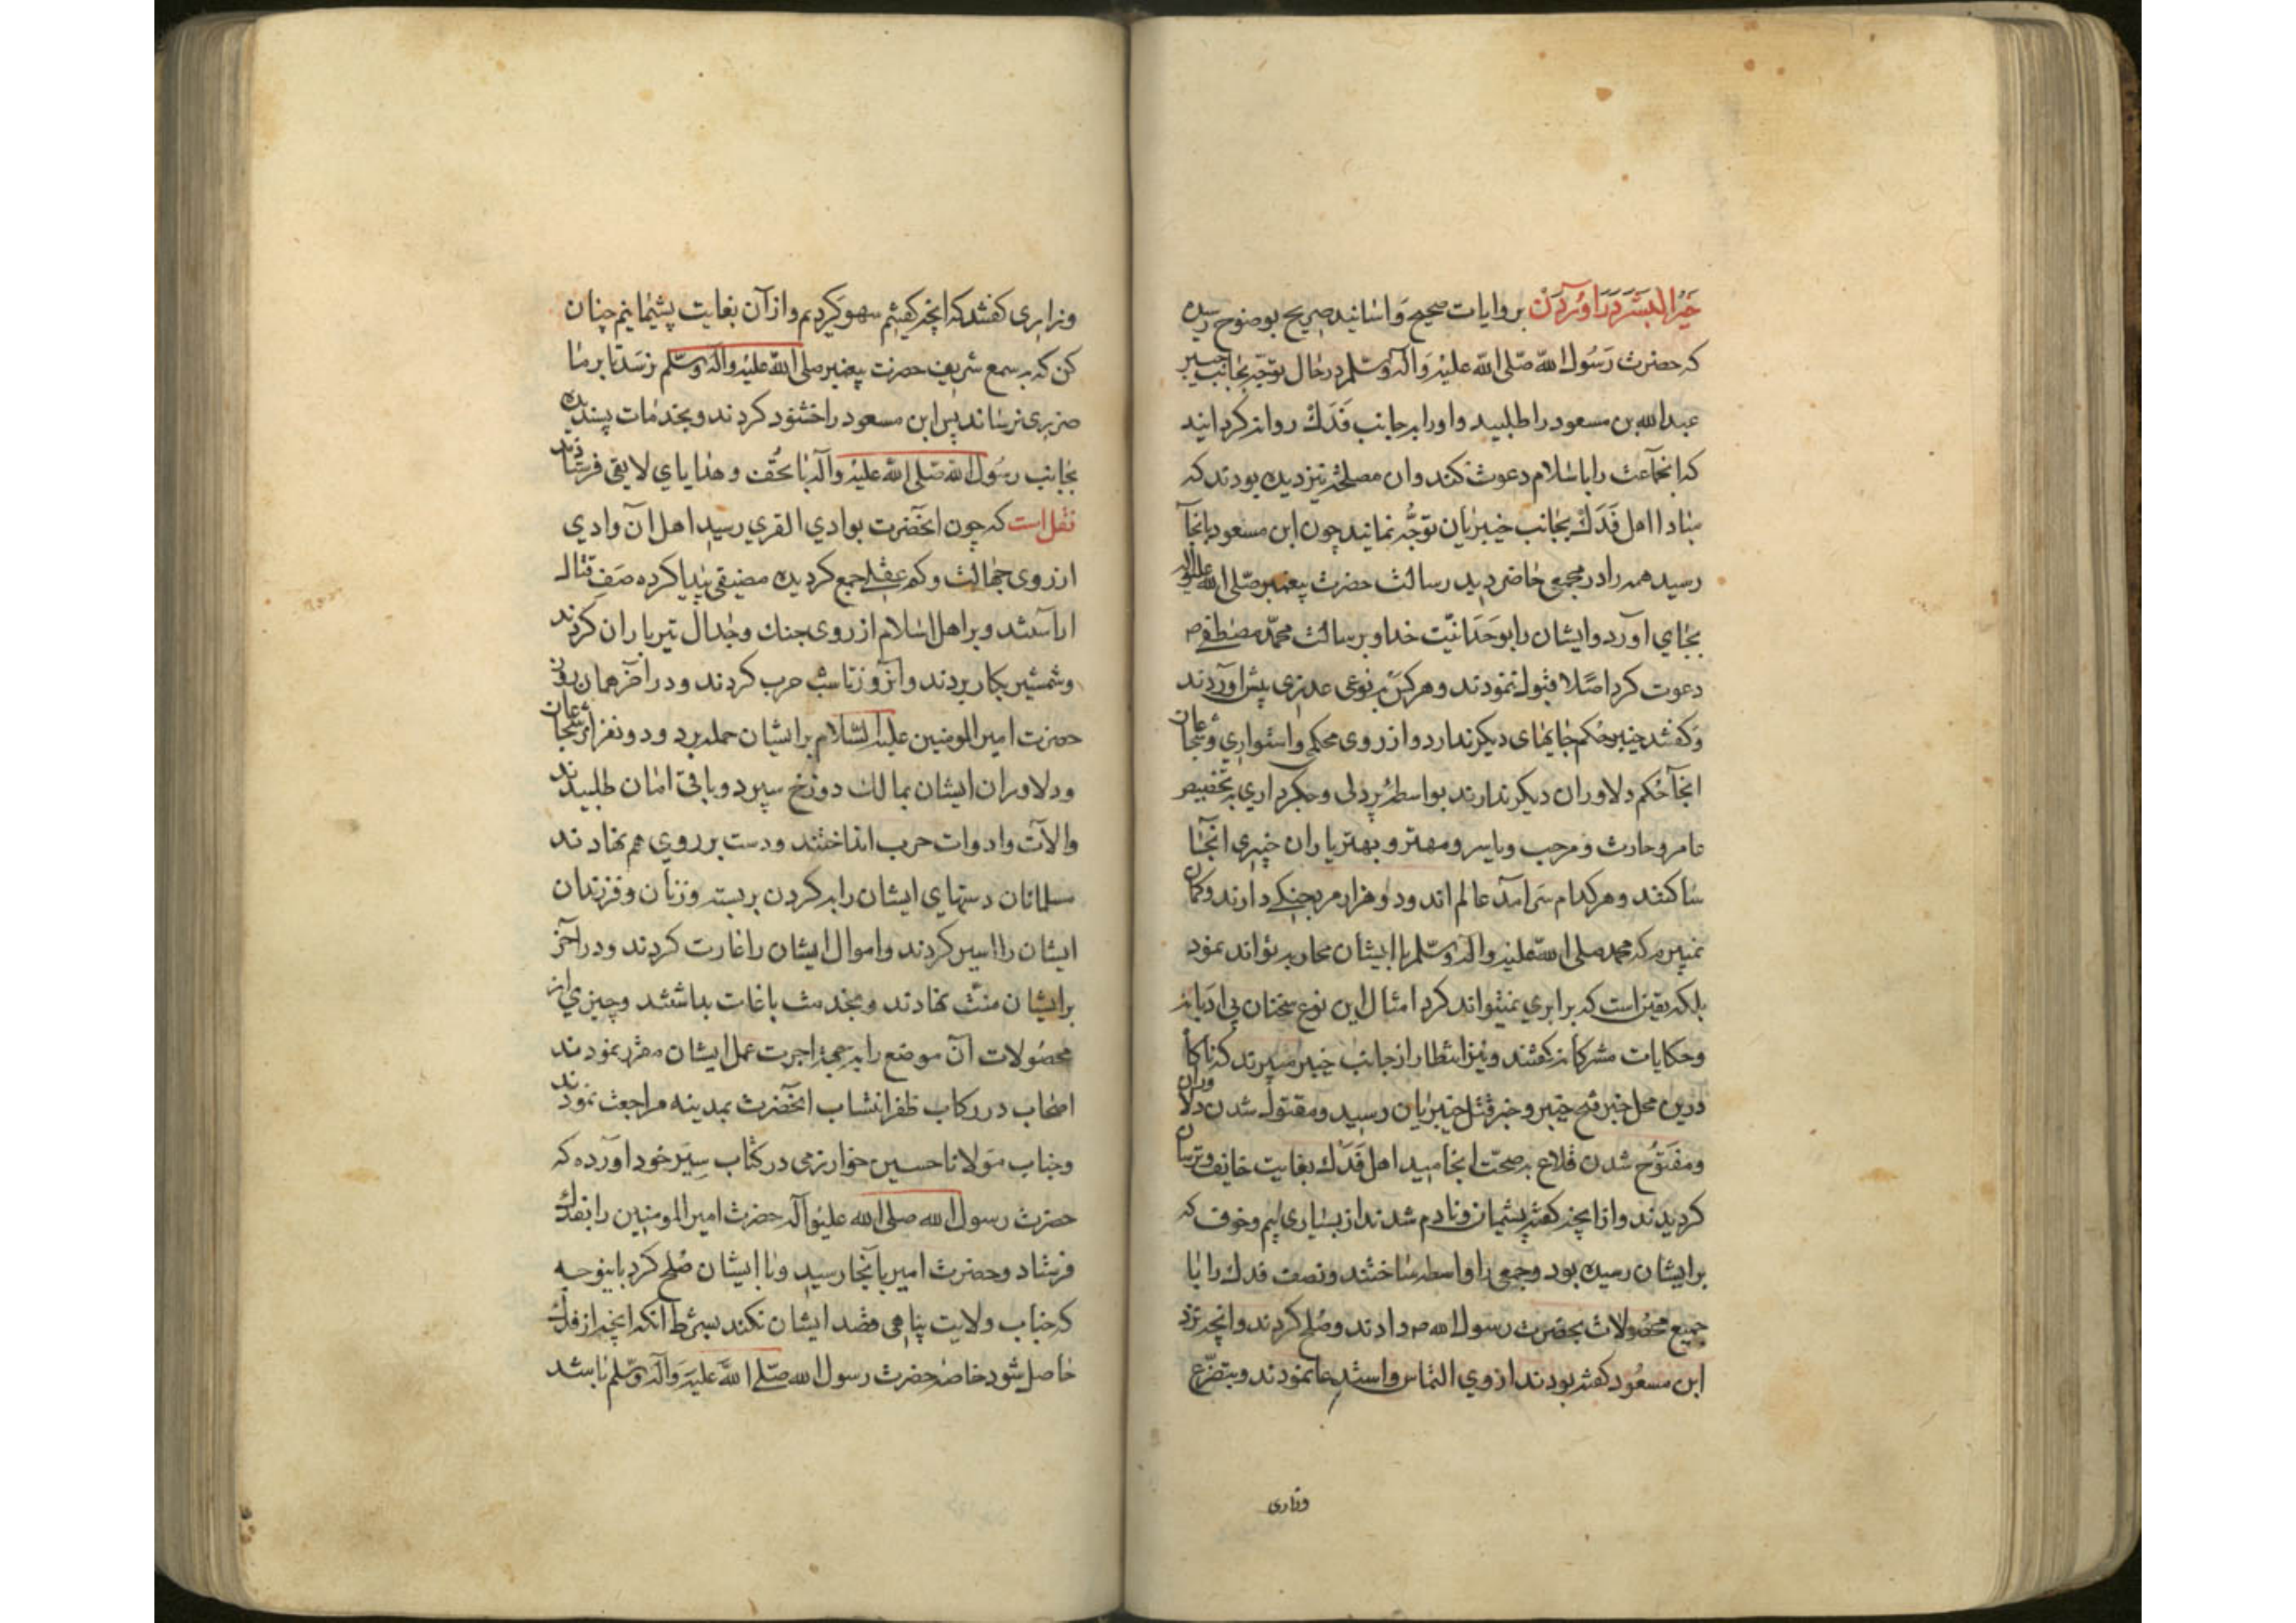 خیر البشر در آوردن بروایات صحیح و اسانید صریح بوضوح رسیده
که حضرت رسول الله صلی الله علیه و آله وسلم در حال توجه بجانب خیبر
عبدالله بن مسعود را طلبید و او را بر جانب فدک روانه کردانید
که انجماعت را باسلام دعوت کند و ان مصلحة نیز دیده بودند که
مبادا اهل فدک بجانب خیبریان توجه نمایند چون ابن مسعود بانجا
رسید همه را در مجمع حاضر دید رسالت حضرت پیغمبر صلی الله علیه واله
بجای آورد و ایشان را بوحدانیت خدا و برسالت محمد مصطفی ص
دعوت کرد اصلا قبول ننمودند و هر کس بنوعی عذری پیش آوردند
و کفتند خیبر حکم جایهای دیکر ندارد و از روی محکمی و استواری و شجاعان
انجا حکم دلاوران دیکر ندارند بواسطه پردلی و جکرداری بتخصیص
عامر و حارث و مرحب و یاسر و مهتر و بهتر یاران خیبری آنجا
ساکنند و هر کدام سرآمد عالم اند و دو هزار مرد جنکی دارند و کمان
نمیبرم که محمد صلی الله علیه و آله وسلم با ایشان محاربه تواند نمود
بلکه یقین است که برابری نمیتواند کرد امثال این نوع سخنان بی ادبانه
و حکایات مشرکانه کفتند و نیز انتظار از جانب خیبر میبردند که ناکاه
درین محل خبر فتح خیبر و خبر قتل خیبریان رسید و مقتول شدن دلاوران
و مفتوح شدن قلاع بصحت انجامید اهل فدک بغایت خایف و ترسان
کردیدند و از انچه کفته پشیمان و نادم شدند از بسیاری بیم و خوف که
بر ایشان رسیده بود و جمعی را واسطه ساختند و نصف فدک را با
جمیع محصولات بحضرت رسول الله ص دادند و صلح کردند و انچه نزد
ابن مسعود کفته بودند از وی التماس و استدعا نمودند و بتضرع
وزاری
وزاری کفتند که انچه کفتیم سهو کردیم و از آن بغایت پشیمانیم چنان
کن که بسمع شریف حضرت پیغمبر صلی الله علیه و آله وسلم نرسد تا بر ما
ضرری نرساند پس ابن مسعود را خشنود کردند و بخدمات پسندیده
بجانب رسول الله صلی الله علیه و آله با تحف و هدایای لایق فرستادند
نقل است که چون انحضرت بوادی القری رسید اهل آن وادی
از روی جهالت و کم عقلی جمع کردیده مضیقی پیدا کرده صف قتال
اراستند و بر اهل اسلام از روی جنک و جدال تیرباران کردند
و شمشیر بکار بردند و آنروز تا شب حرب کردند و در آخر همان روز
حضرت امیر المومنین علیه السلام بر ایشان حمله برد و دو نفر از شجاعان
و دلاوران ایشان بمالک دوزخ سپرد و باقی امان طلبیدند
و الآت و ادوات حرب انداختند و دست بر روی هم نهادند
مسلمانان دستهای ایشان را بر کردن بربسته و زنان و فرزندان
ایشان را اسیر کردند و اموال ایشان را غارت کردند و در آخر
بر ایشان منت نهادند و بخدمت باغات بداشتند و چیزی از
محصولات آن موضع را بجهة اجرت عمل ایشان مقرر نمودند
اصحاب در رکاب ظفر انتساب انحضرت بمدینه مراجعت نمودند
و جناب مولانا حسین خوارزمی در کتاب سیر خود آورده که
حضرت رسول الله صلی الله علیه و آله حضرت امیر المومنین را بفدک
فرستاد و حضرت امیر بآنجا رسید و با ایشان صلح کرد باینوجه
که جناب ولایت پناهی قصد ایشان نکند بشرط آنکه انچه از فدک
حاصل شود خاصه حضرت رسول الله صلی الله علیه و آله وسلم باشد